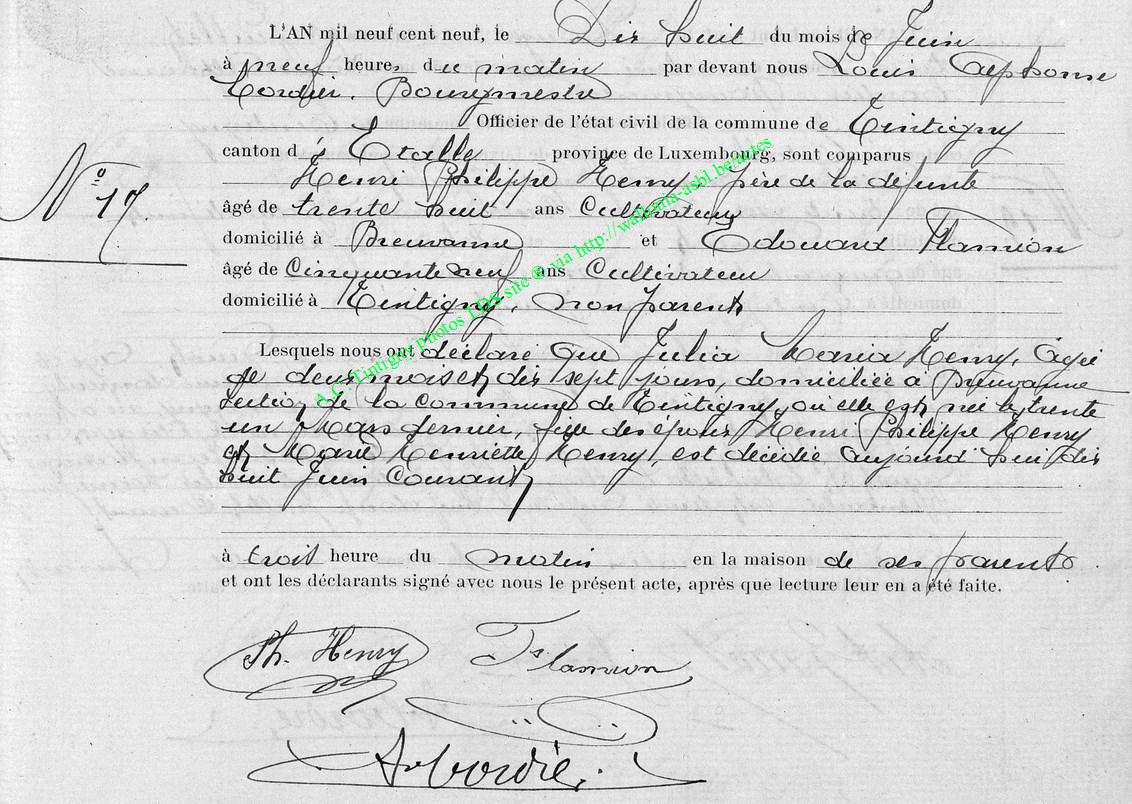 L'AN mil neuf cent neuf, le Dix huit du mois de Juin
à neuf heures du matin par devant nous Louis Alphonse
Cordier, Bourgmestre
Officier de l'état civil de la commune de Tintigny
canton d'Etalle province de Luxembourg, sont comparus
Henri Philippe Henry, père de la défunte
N° 17
âgé de trente huit ans Cultivateur
domicilié à Breuvanne et Edouard Flamion
âgé de Cinquante neuf ans Cultivateur
domicilié à Tintigny, non parents
Lesquels nous ont déclaré que Julia Maria Henry, âgée
de deux mois et dix sept jours, domiciliée à Breuvanne
section de la commune de Tintigny, où elle est née le trente
un Mars dernier, fille des époux Henri Philippe Henry
et Marie Henriette Henry, est décédée aujourd'hui dix
huit Juin Courant
à trois heure du matin en la maison de ses parents
et ont les déclarants signé avec nous le présent acte, après que lecture leur en a été faite.
Ph. Henry Flamion
A. Cordier
A.C. Tintigny photos LDS site © via http://wallonia-asbl.be/actes